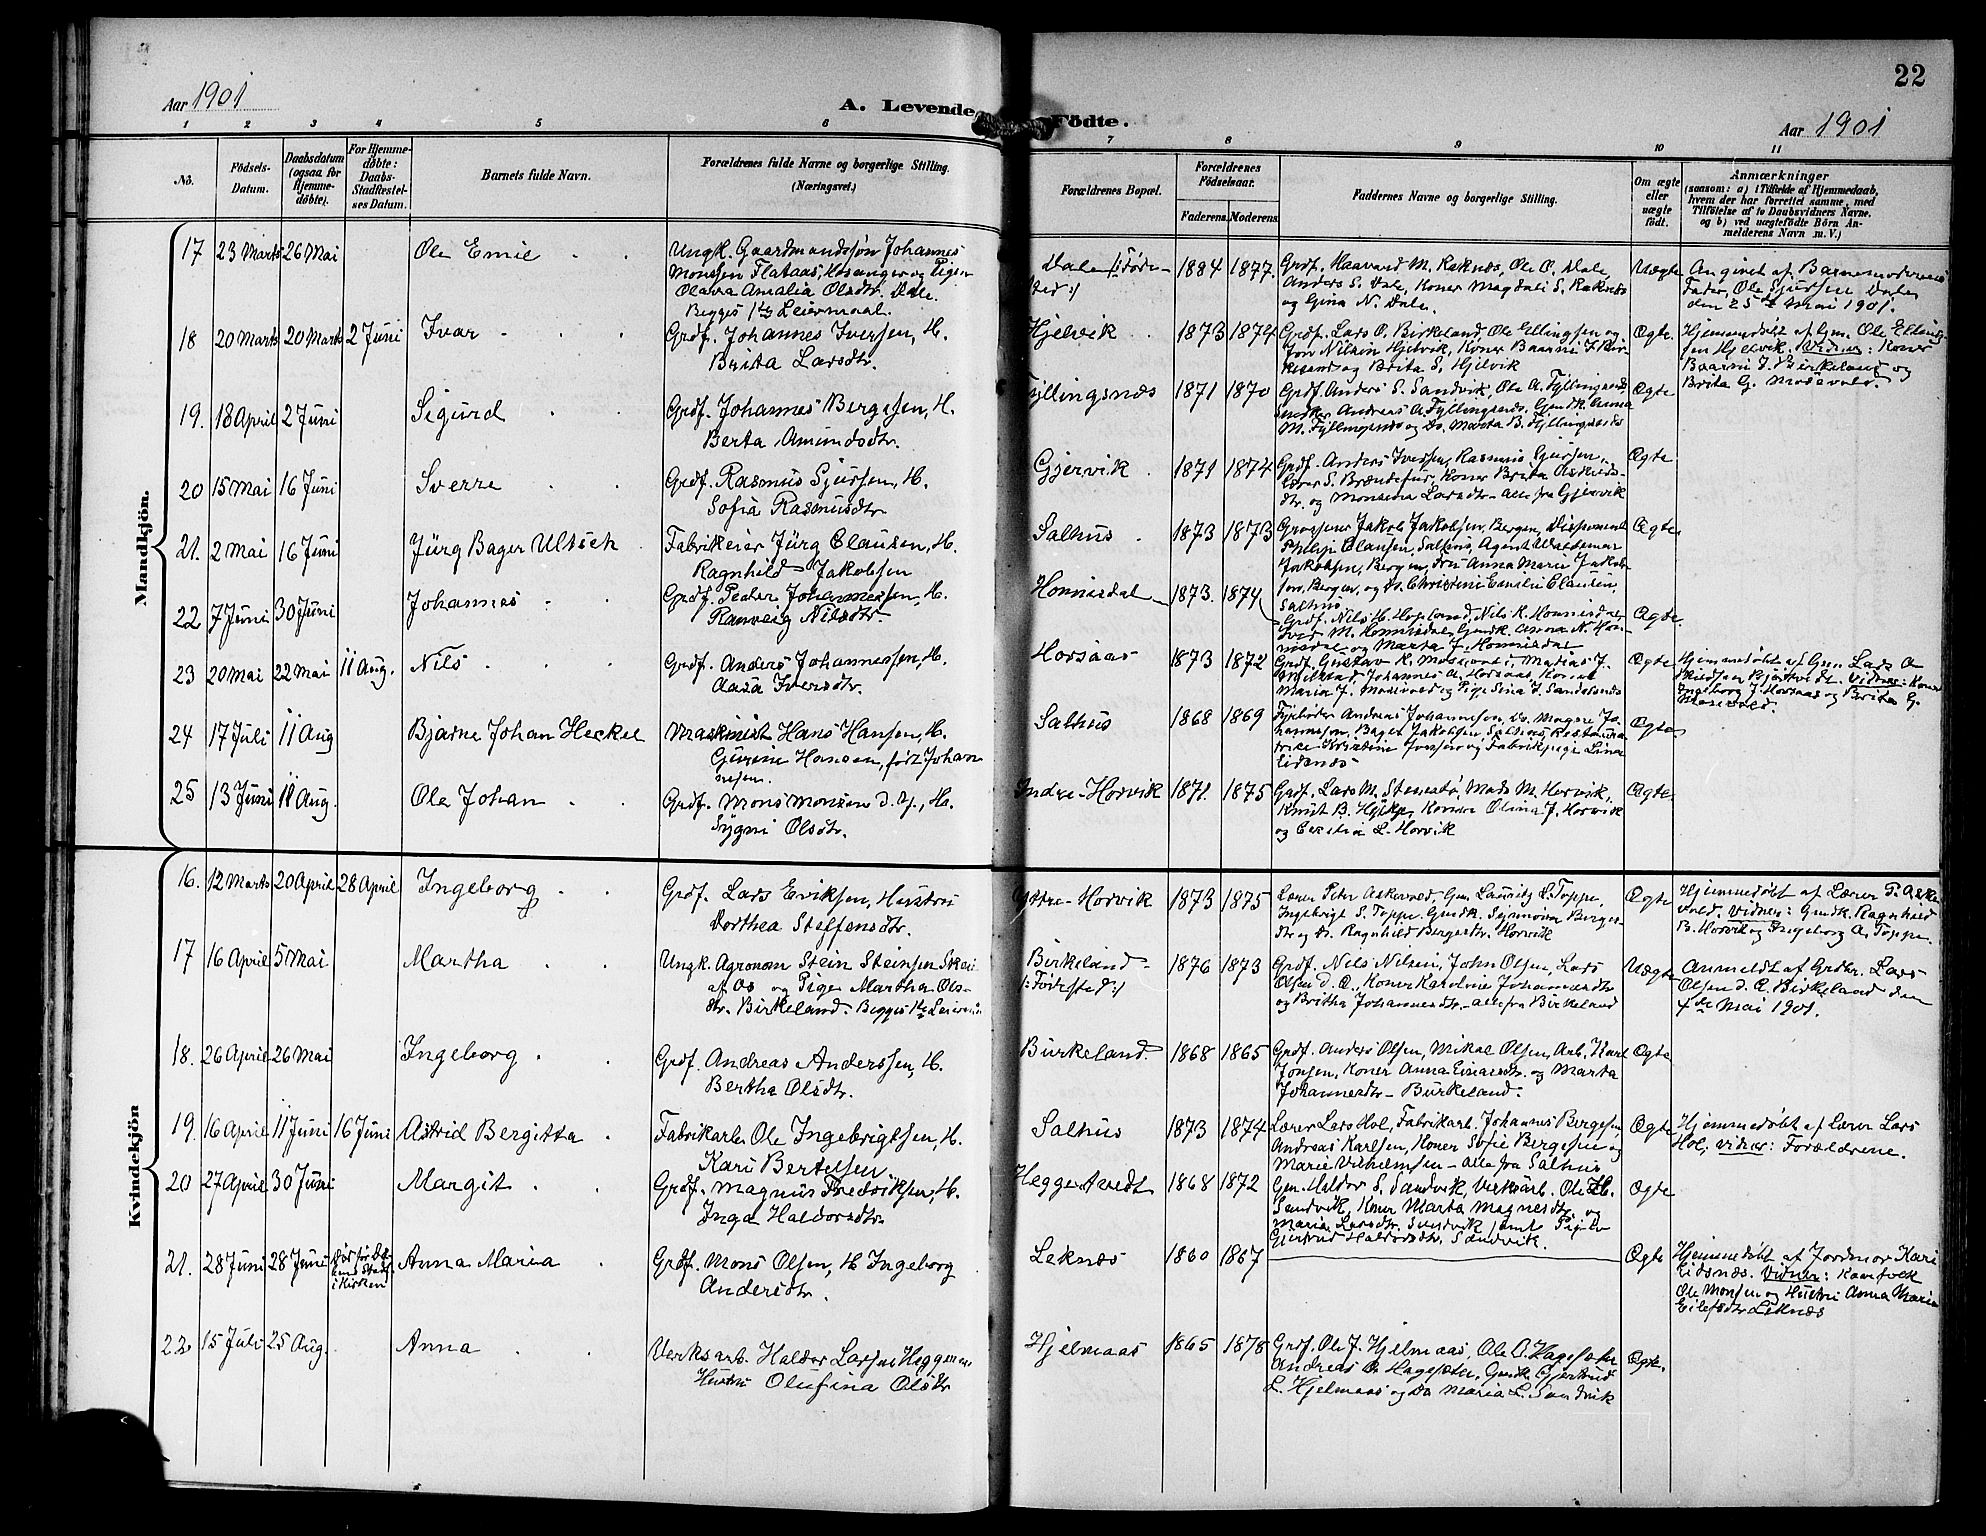 22
Aar 1901
A. Levende Födte.
Aar 1901
1 2 3 4 5 6 7 8 9 10 11
No.
Födsels-Datum.
Daabsdatum (ogsaa for Hjemmedöbte).
For Hjemmedöbte: Daabs-Stadfæstelses Datum.
Barnets fulde Navn.
Forældrenes fulde Navne og borgerlige Stilling. (Næringsvei.)
Forældrenes Bopæl.
Forældrenes Födselsaar.
Faderens. Moderens.
Faddernes Navne og borgerlige Stilling.
Om ægte eller uægte födt.
Anmærkninger
(saasom: a) i Tilfælde af Hjemmedaab, hvem der har forrettet samme, med Tilföielse af to Daabsvidners Navne. og b) ved uægtefödte Börn Anmelderens Navn m. V.)
Mandkjön.
17 23 Marts 26 Mai Ole Emil
Ungk. Gaardmandssøn Johannes
Monssen Flataas, Hosanger og Pigen
Olava Amalia Olsdtr. Dale.
Begges 1ste Leiermaal.
Dale /: Føde-
sted :/
1884 1877.
Grdf. Haavard M. Raknes, Ole O. Dale,
Anders S. Dale, Koner Magdali S. Raknes
og Gina N. Dale.
Uægte
Angivet af Barnemoderens
Fader, Ole Sjursen Dale
den 25de Mai 1901.
18 20 Marts 20 Marts 2 Juni Ivar
Grdf. Johannes Iversen, H.
Brita Larsdtr.
Hjelvik 1873 1874
Grdf. Lars O. Birkeland, Ole Ellingsen og
Jon Nilsen Hjelvik, Koner Baarni J. Bir-
keland og Brita S. Hjelvik
Ægte
Hjemmedøbt af Gm. Ole Elling-
sen Hjelvik. Vidner: Koner
Baarni J. Birkeland og
Brita G. Mosevold.
19. 18 April 2 Juni Sigurd
Grdf. Johannes Bergesen, H.
Berta Amundsdtr.
Fyllingsnæs 1871 1870
Grdf. Anders S. Sandvik, Ole A. Fyllingsnes,
Andreas A. Fyllingsnes. Gmdk. Anna
M. Fyllingsnes og Do. Marta B. Fyllingsnes
Ægte
20 15 Mai 16 Juni Sverre
Grdf. Rasmus Sjursen, H.
Sofia Rasmusdtr
Gjervik 1871 1874
Grdf. Anders Iversen, Rasmus Sjursen,
Lærer S. Brændefur, Koner Brita
dtr. og Monsina Larsdtr - alle fra Gjervik
Ægte
21. 2 Mai 16 Juni Jürg Bager Ultsek
Fabrikeier Jürg Clausen, H.
Ragnhild Jakobsen
Salhus 1873 1873
Grosserer Jakob Jakobsen, Bergen, Disponent
Philip Clausen, Salhus, Agent Waldemar
Jakobsen, Bergen, Fru Anna Marie Jakob-
sen, Bergen, og Do. Christine Emilie Clausen,
Salhus
Ægte
22 7 Juni 30 Juni Johannes
Grdf. Peder Johannessen, H.
Ranveig Nilsdtr.
Honnisdal 1873. 1874
Grdf. Nils H. Hopland, Nils K. Honnisdal,
M. Honnisdal, Gmdk. Anna N. Hon-
nisdal og Marta J. Honnisdal
Ægte
23 20 Mai 22 Mai 11 Aug. Nils
Grdf. Anders Johannessen, H.
Aasa Iversdtr.
Horsaas 1873 1872
Grdf. Gustav K. Mosevold, Matias J.
Mjelstad, Johannes A. Horsaas, Kone
Maria J. Mosevold og Pige Sina J. Sandesnes
Ægte
Hjemmedøbt af Gm. Lars A
Vidner: Kone
Ingeborg J. Horsaas og Brita G.
Mosevold.
24 17 Juli 11 Aug Bjarne Johan Heckel
Maskinist Hans Hansen, H.
Gurine Hansen, født Johan
nesen.
Salhus 1868 1869
Fyrbøter Andreas Johannesen, Do. Magne Jo-
hannesen, Bager Jakobsen, Salhus, Restaura
trice Kristine Iversen og Fabrikpige Lina
Eidsnes
Ægte
25 13 Juni 11 Aug. Ole Johan
Grdf. Mons Monsen d. y., H.
Sygni Olsdtr.
Indre-Horvik 1871. 1875
Grdf. Lars M. Stensstø, Mads M. Horvik,
Knut B. Koner Olina J. Horvik
og Cecilia L. Horvik
Ægte.
Kvindekjön
16. 12 Marts 20 April 28 April Ingeborg
Grdf. Lars Eriksen, Hustru
Dorthea Steffensdtr.
Ytre-Horvik 1873 1875
Lærer Peter Askevold, Gm. Lauritz L. Toppe,
Ingebrigt S. Toppe. Gmdk. Synnøva Berges-
dtr og Do. Ragnhild Bergesdtr. Horvik
Ægte
Hjemmedøbt af Lærer P. Aske
vold. Vidner: Gmdk. Ragnhild
B. Horvik og Ingeborg A. Toppe.
17 16 April 5 Mai Martha
Ungk. Agronom Stein Steinsen Skeie
af Os og Pige Martha Ols-
dtr. Birkeland. Begges 1ste Leierm.
Birkeland -
/: Fødested :/
1876 1873
Grdf. Nils Nilsen, John Olsen, Lars
Olsen d. Æ. Koner Karoline Johannesdtr
og Britha Johannesdtr. - alle fra Birkeland
Uægte
Anmeldt af Grdbr. Lars
Olsen d. Æ. Birkeland den
4de Mai 1901.
18. 26 April 26 Mai Ingeborg
Grdf. Andreas Anderssen, H.
Bertha Olsdtr.
Birkeland. 1868 1865
Grdf. Anders Olsen, Mikal Olsen, Arb. Karl
Jonsen, Koner Anna Einarsdtr. og Marta
Johannesdtr - Birkeland.
Ægte
19. 16 April 11 Juni 16 Juni Astrid Bergitta
Fabrikarb. Ole Ingebrigtsen, H.
Kari Bertelsen
Salhus 1873 1874
Lærer Lars Hol, Fabrikarb. Johannes Bergesen
Andreas Karlsen, Koner Sofie Bergesen og
Marie Vilhelmsen - alle fra Salhus
Ægte
Hjemmedøbt af Lærer Lars
Hol, Vidner: Forældrene.
20 27 April 30 Juni Margit
Grdf. Magnus Fredriksen, H.
Inga Haldorsdtr.
Heggertvedt 1868 1872
Gm. Haldor S. Sandvik, Verksarb. Ole H.
Sandvik, Koner Marta Magnesdtr. og
Maria Larsdtr. Sandvik samt Pige
Gjertrud Haldorsdtr, Sandvik.
Ægte
21. 28 Juni 28 Juni Død før Da-
bens Stadf.
i Kirken
Anna Maria
Grdf. Mons Olsen, H. Ingeborg
Andersdtr.
Leknæs 1860 1867
Ægte
Hjemmedøbt af Jordmor Kari
Eidsnæs. Vidner: Kaarfolk
Ole Monsen og Hustru Anna Maria
Eilefsdtr Leknæs
22 15 Juli 25 Aug. Anna
Verksarb. Haldor Larsen Heggernes
Hustru Olufina Olsdtr
Hjelmaas 1865 1878
Grdf. Ole J. Hjelmaas, Ole O. Hagesæter
Andreas O. Hagesæter, Gmdk. Gjertrud
L. Hjelmaas og Do Maria L. Sandvik
Ægte.